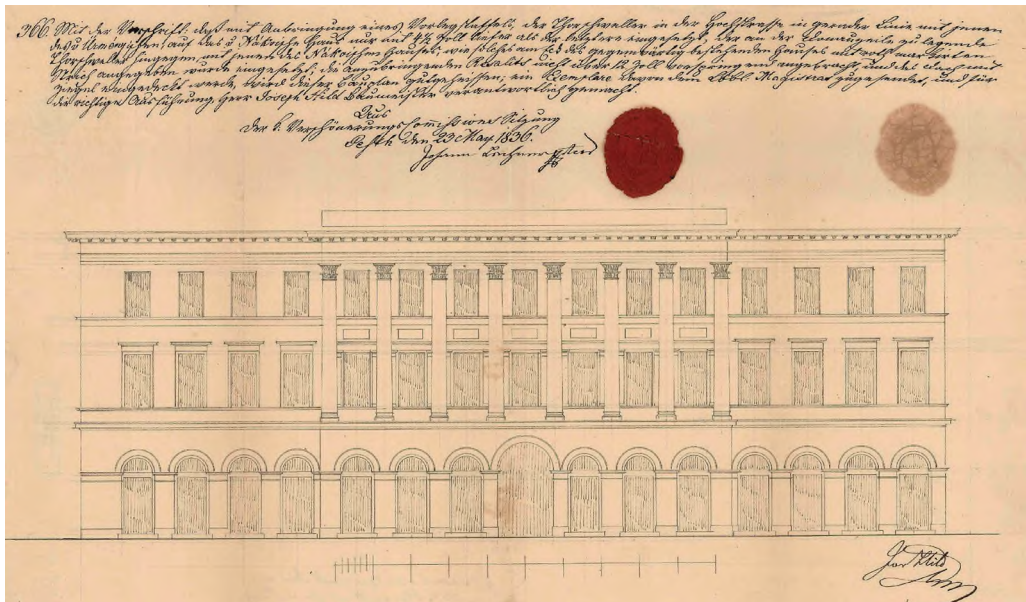 366. Mit der Vorschrift: daß mit Anbringung eines Vorlegstaffels, der Thorschweller in der Hochstrasse in gerader Linie mit jenen
des v Ürményischen, auf das v Nákosche Haus nur mit 4½ Zoll tiefer als der letztere eingesetzt, der an der zu legende
Thorschweller hingegen, mit jenem des Nákoischen Hauses, wie solches am Eck des gegenwärtig bestehenden Hauses
Strich angegeben wurde eingesetzt; die anzubringenden Risalits nicht über 12 Zoll vorspringend angebracht, und das Dach mit
Ziegel eingedeckt werde, wird dieser Bauplan gutgeheissen; ein Exemplare davon dem Löbl. Magistrat zugesendet, und für
die richtige Ausführung Herr Joseph Hild Baumeister verantwortlich gemacht.
Aus
der k. Verschönerungs Commissions Sitzung
Pesth den 23 May 1836.
Johann Lechner
Jos Hild